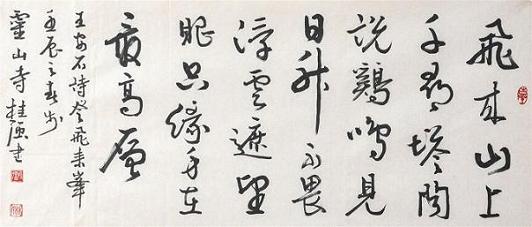 飛來山上
千尋塔聞
說鷄鳴見
日升不畏
浮雲遮望
眼只緣身在
最高層
王安石詩登飛来峯
壬辰之春於
靈山寺 桂書